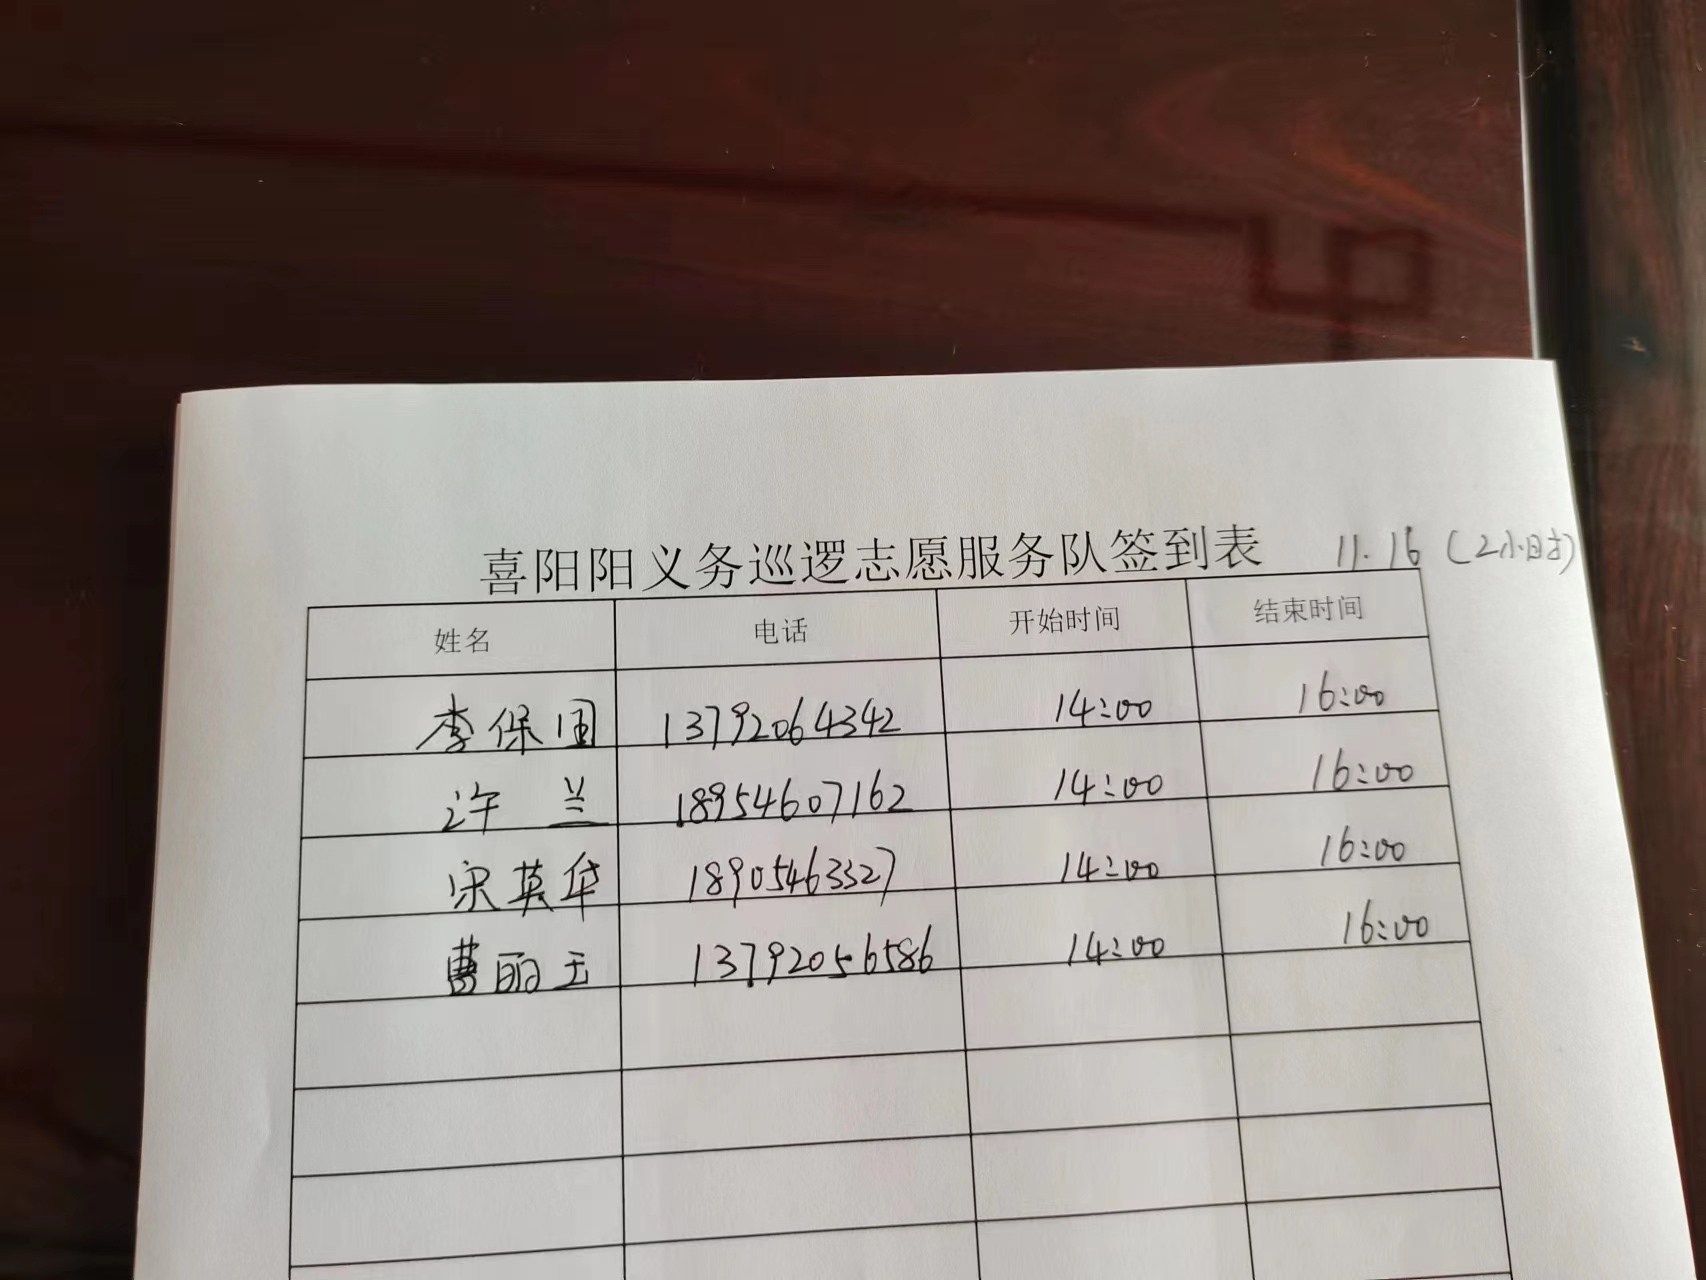 喜阳阳义务巡逻志愿服务队签到表 11.16（2小时）
姓名 电话 开始时间 结束时间
李保国 13792064342 14:00 16:00
许兰 18954607162 14:00 16:00
宋英华 18905463327 14:00 16:00
曹丽玉 13792056586 14:00 16:00